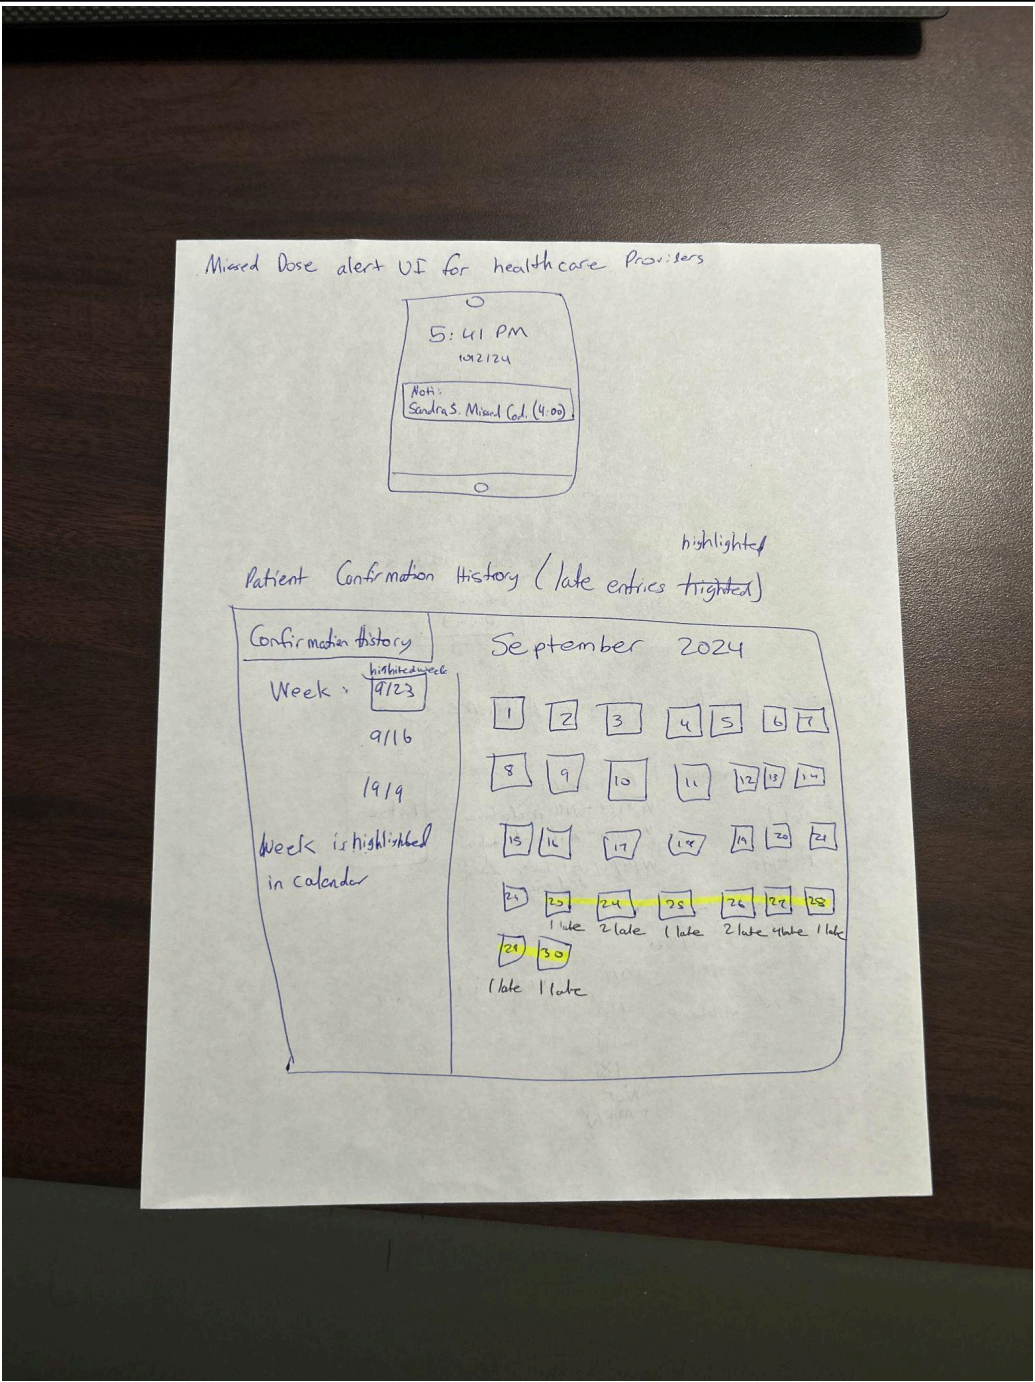 Missed Dose alert UI for healthcare Providers
5:41 PM
10/2/24
Noti:
Sandra S. Missed Cod. (4:00)
highlighted
Patient Confirmation History (late entries highted)
Confirmation History
September 2024
highited week
Week: 9/23
9/16
9/9
Week is highlighted
in calendar
1 2 3 4 5 6 7
8 9 10 11 12 13 14
15 16 17 18 19 20 21
24 25 26 27 28
1 late 2 late 1 late 2 late 4 late 1 late
29 30
1 late 1 late